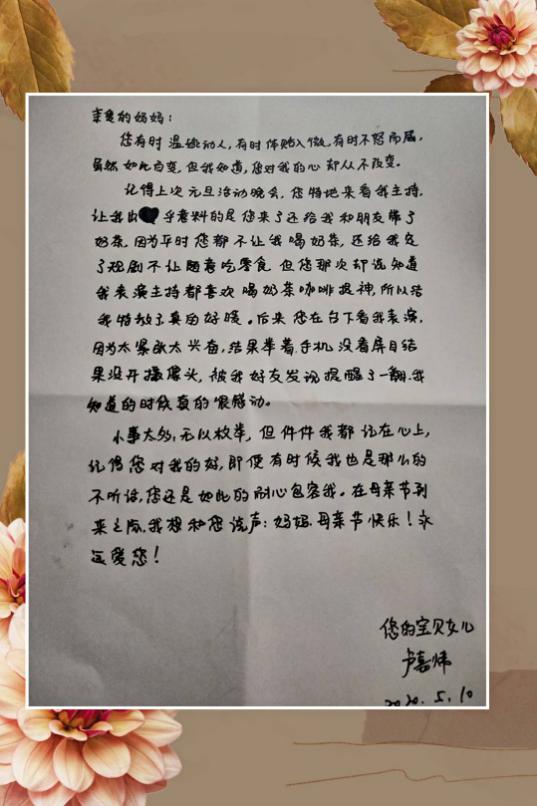 亲爱的妈妈：
您有时温婉动人，有时体贴入微，有时不怒而威，
虽然如此百变，但我知道，您对我的心却从不改变。
记得上次元旦活动晚会，您特地来看我主持，
让我出乎意料的是您来了还给我和朋友带了
奶茶，因为平时您都不让我喝奶茶，还给我定
了规则不让随意吃零食但您那次却说知道
我表演主持都喜欢喝奶茶咖啡提神，所以给
我特放了真的好暖。后来您在台下看我表演，
因为太紧张太兴奋，结果举着手机没看屏目结
果没开摄像头，被我好友发现提醒了一翻，我
知道的时候真的很感动。
小事太多，无以枚举，但件件我都记在心上，
记得您对我的好，即便有时候我也是那么的
不听话，您还是如此的耐心包容我。在母亲节到
来之际，我想和您说声：妈妈，母亲节快乐！永
远爱您！
您的宝贝女儿
卢嘉炜
2020.5.10